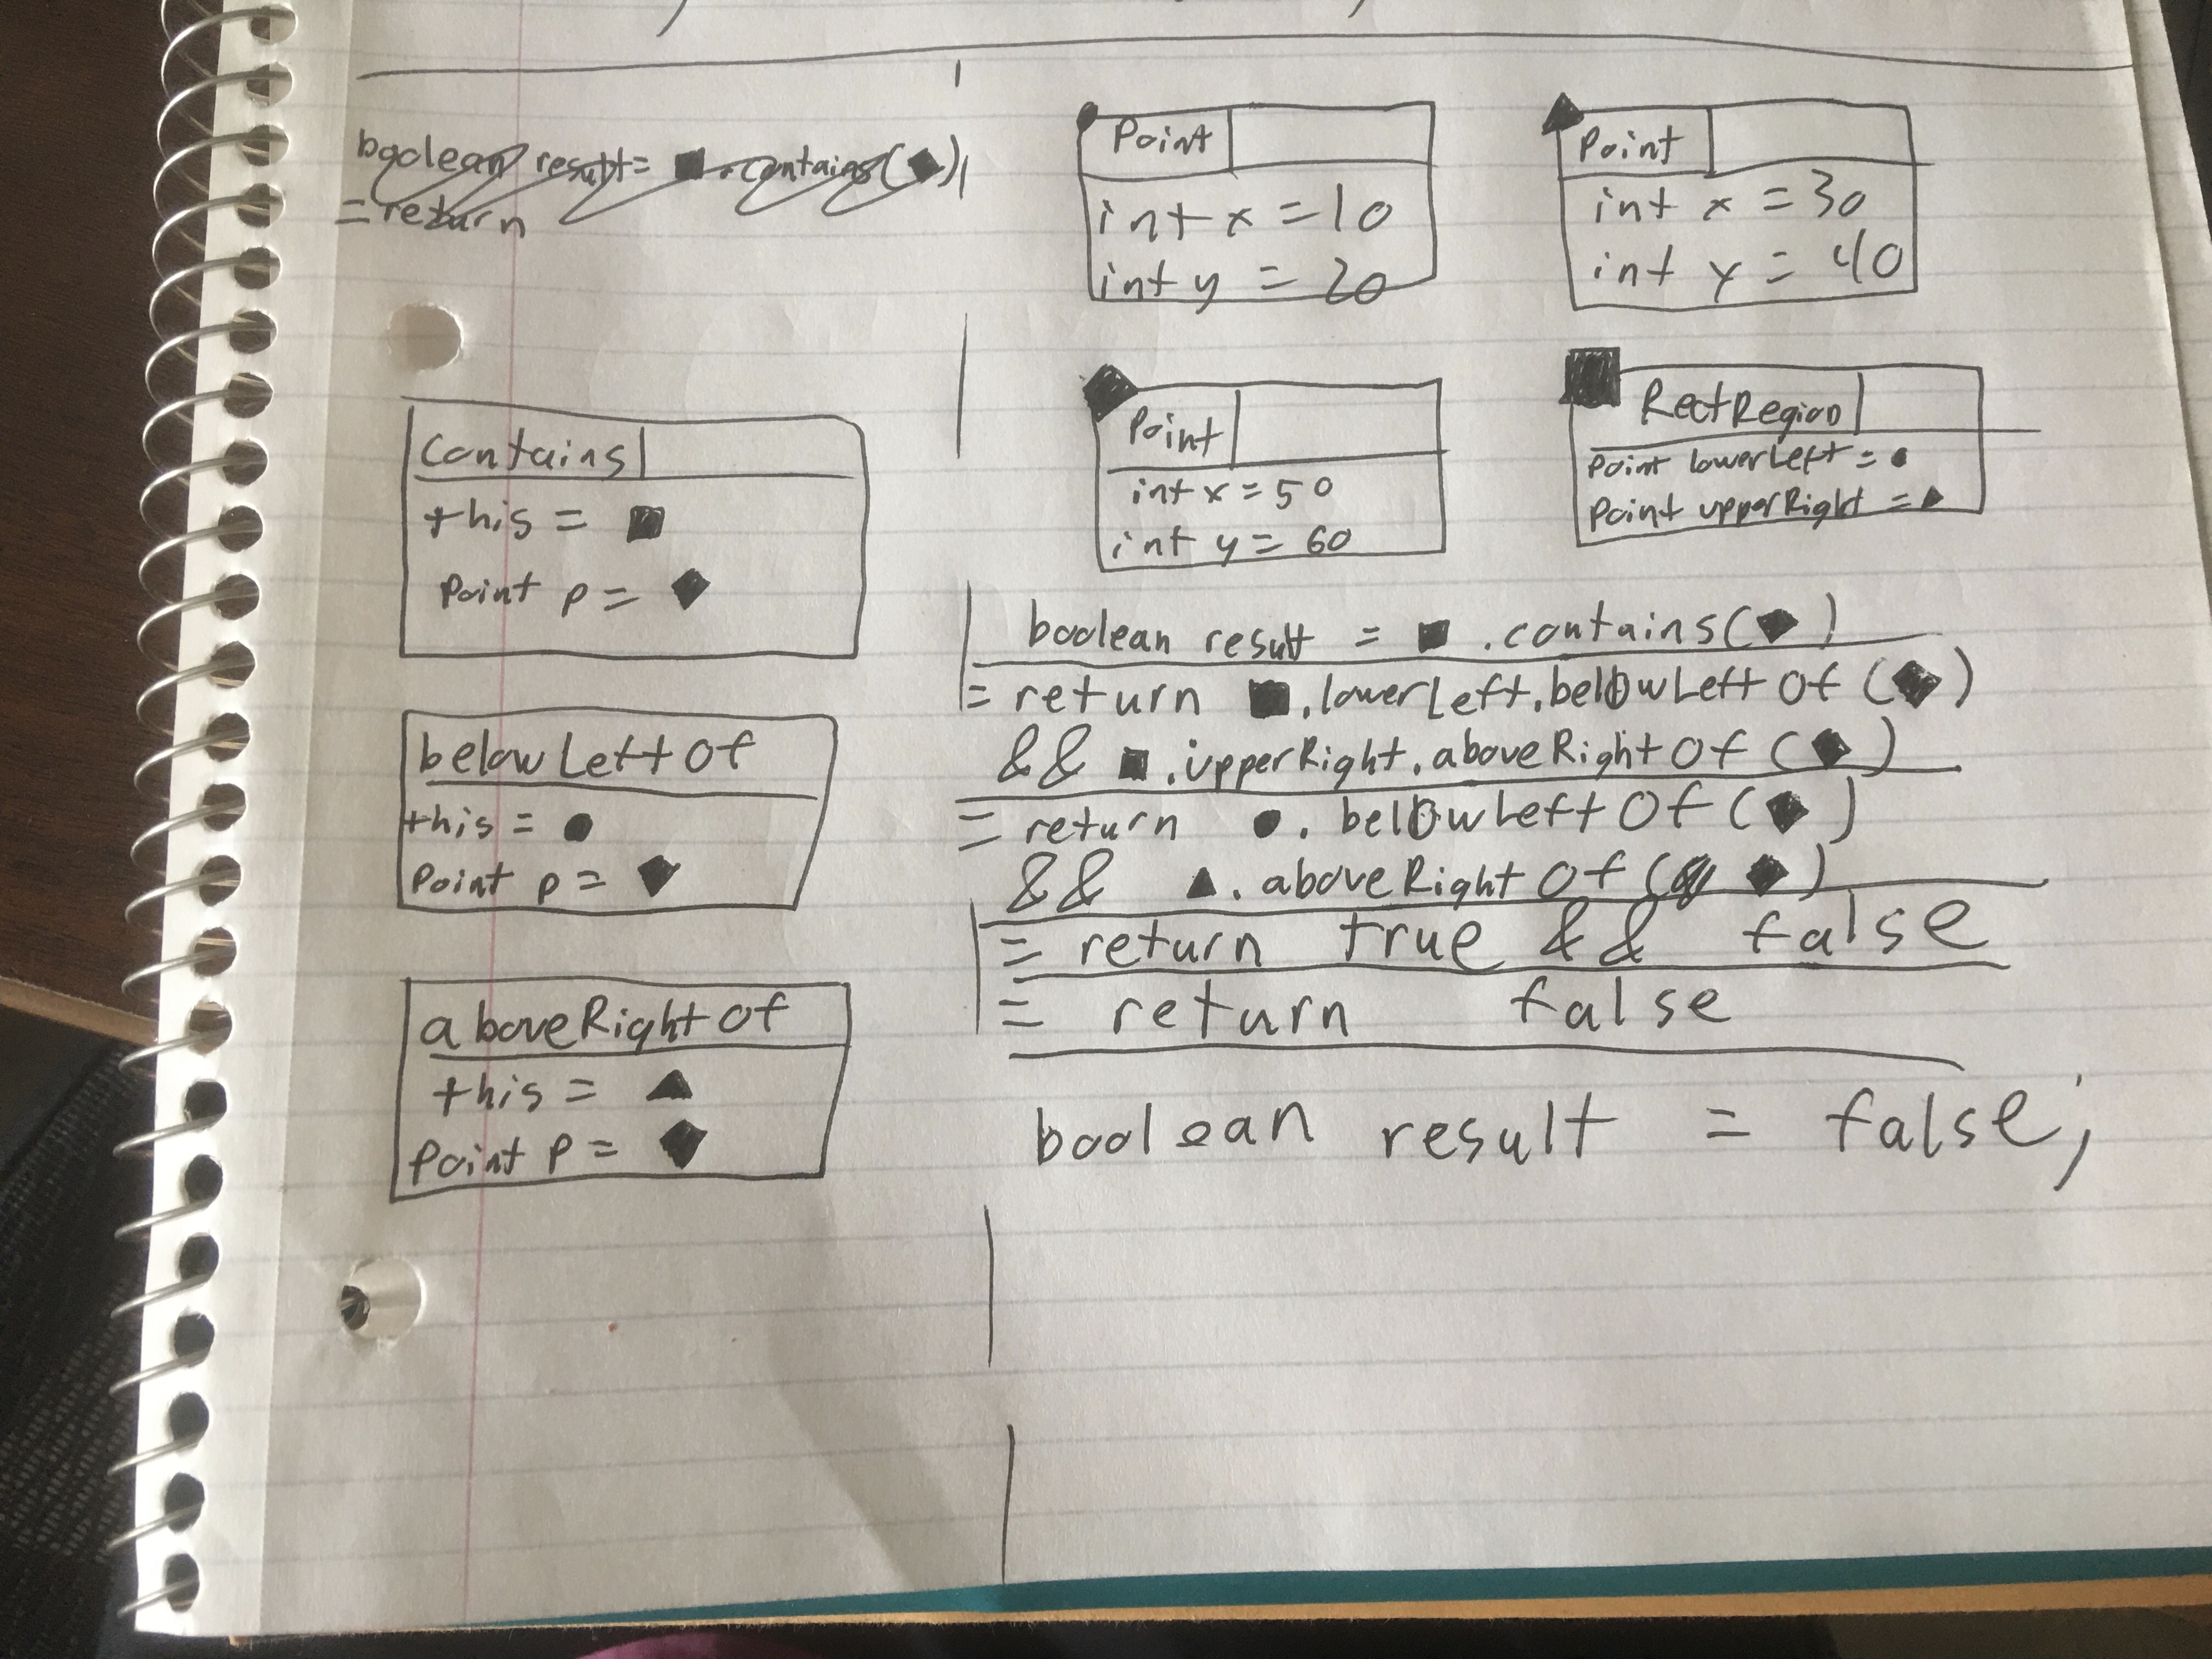 boolean result= ■.contains(◆)
= return
contains
this = ■
Point p = ◆
belowLeftOf
this = ●
Point p = ◆
aboveRightOf
this = ▲
Point p = ◆
Point
int x = 10
int y = 20
Point
int x = 30
int y = 40
Point
int x = 50
int y = 60
RectRegion
Point lowerLeft = ●
Point upperRight = ▲
boolean result = ■.contains(◆)
= return ■.lowerLeft.belowLeftOf(◆)
&& ■.upperRight.aboveRightOf(◆)
= return ●.belowLeftOf(◆)
&& ▲.aboveRightOf(◆)
= return true && false
= return false
boolean result = false;